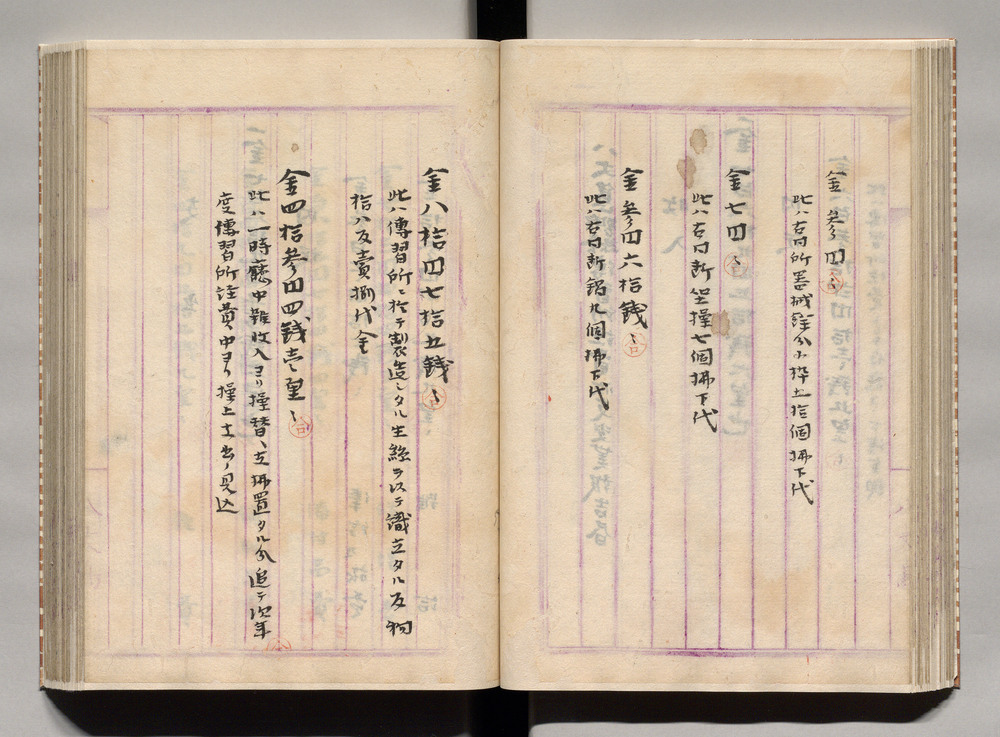 金参円
此ハ右同所器械繰分小枠五拾個拂下代
金七円
此ハ右同断坐操七個拂下代
金参円六拾銭
此ハ右同断鍋九個拂下代
金八拾四円七拾五銭
此ハ傳習所ニ於テ製造シタル生絲ヲ以テ織立タル反物
拾八反賣捌代金
金四拾参円四銭壱厘
此ハ一時廳中雑收入ヨリ操替ヘ支拂置タル分追テ次年
度傳習所経費中ヨリ操上支出ノ見込